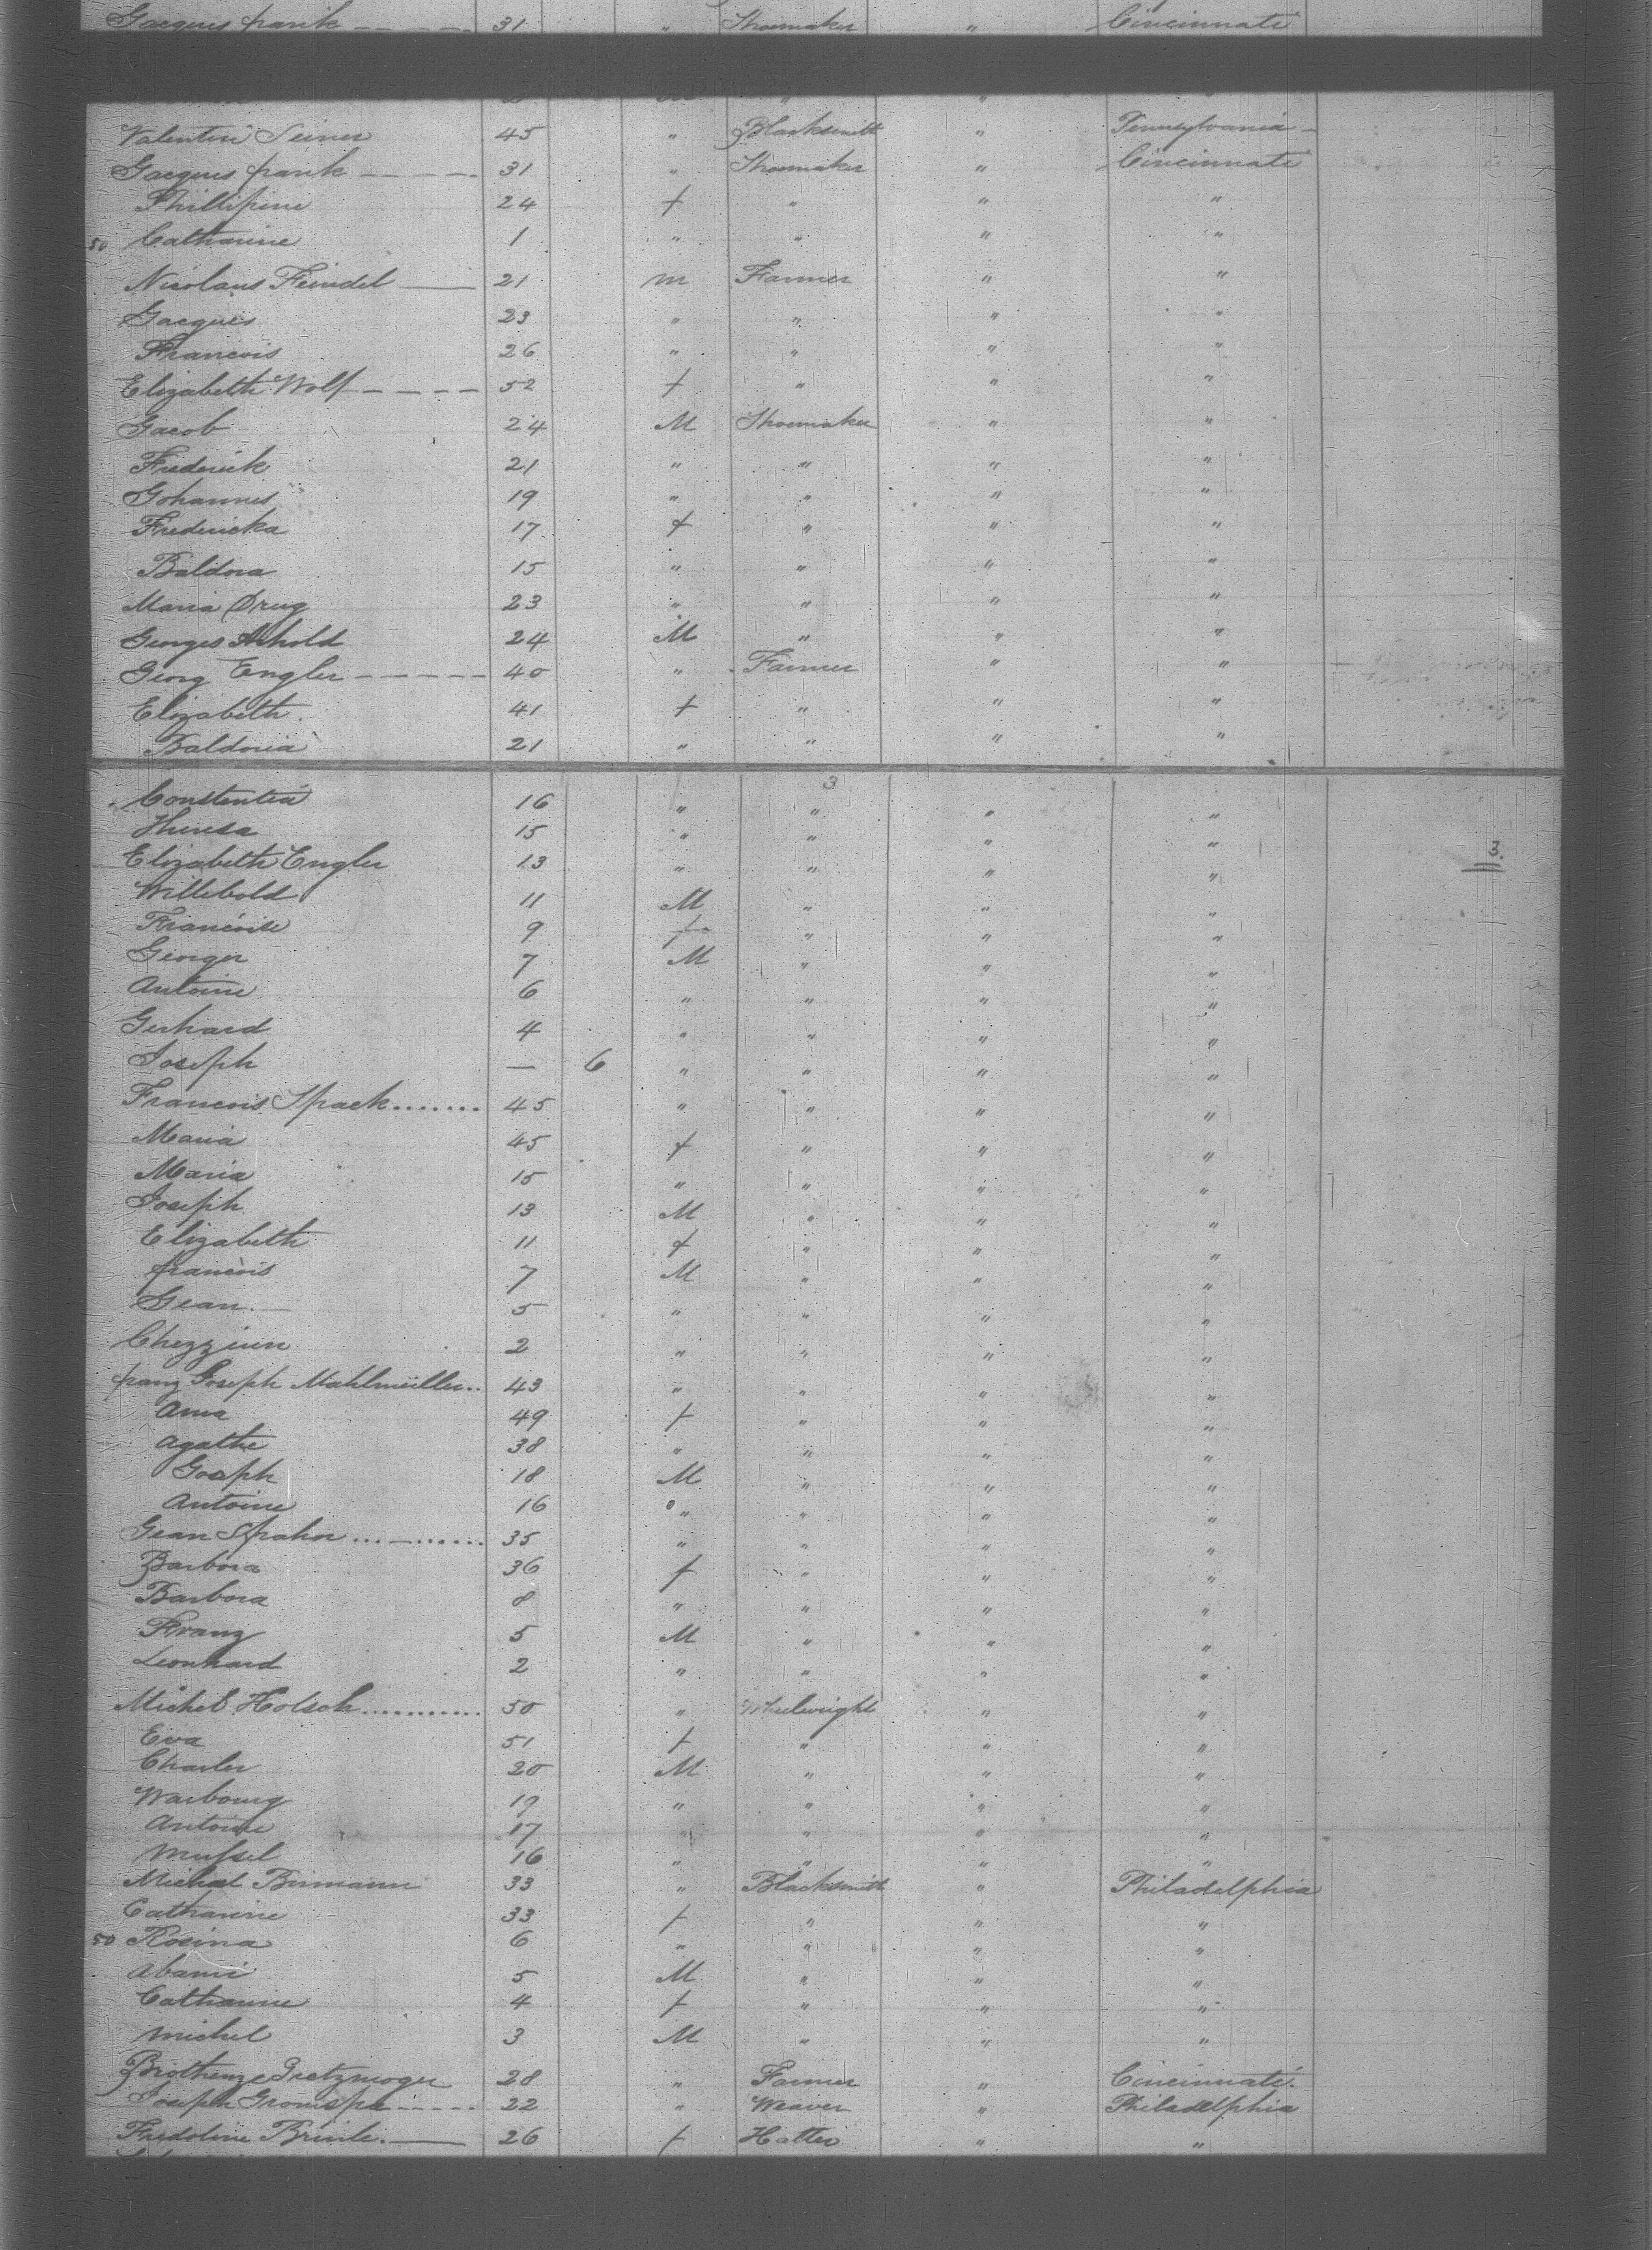 Gacques frank — — — — 31 " Shoemaker " Cincinnati
Valentin Seiner 45 " Blacksmith " Pennsylvania
Gacques frank — — — — 31 " Shoemaker " Cincinnati
Phillipine 24 f " " "
50 Catharine 1 " " " "
Nicolaus Feindel — 21 m Farmer " "
Gacques 23 " " " "
Francois 26 " " " "
Elizabeth Wolf — — — — 52 f " " "
Gacob 24 M Shoemaker " "
Frederick 21 " " " "
Gohannes 19 " " " "
Fredericka 17 f " " "
Baldora 15 " " " "
Maria Drug 23 " " " "
Georges Arhold 24 M " " "
Georg Engler — — — — — 40 " Farmer " "
Elizabeth 41 f " " "
Baldoria 21 " " " "
3
Constentia 16 " " " "
Theresa 15 " " " "
Elizabeth Engler 13 " " " " 3.
Willebold 11 M " " "
Francoise 9 f " " "
Georges 7 M " " "
Antoine 6 " " " "
Gerhard 4 " " " "
Joseph — 6 " " " "
Francois Spack ....... 45 " " " "
Maria 45 f " " "
Maria 15 " " " "
Joseph 13 M " " "
Elizabeth 11 f " " "
francois 7 M " " "
Gean. 5 " " " "
Chezzinn 2 " " " "
franz Joseph Mahlmüller.. 43 " " " "
Anna 49 f " " "
Agathe 38 " " " "
Goseph 18 M " " "
Antoine 16 " " " "
Gean Spahn ........... 35 " " " "
Barbora 36 f " " "
Barbora 8 " " " "
Franz 5 M " " "
Leonhard 2 " " " "
Michel Holsch ........... 50 " Wheelwright " "
Eva 51 f " " "
Charles 20 M " " "
Warbourg 19 " " " "
Antoine 17 " " " "
16 " " " "
Michel Birmann 33 " Blacksmith " Philadelphia
Catharine 33 f " " "
50 Rosina 6 " " " "
5 M " " "
Catharine 4 f " " "
michel 3 M " " "
28 " Farmer " Cincinnati.
Joseph 22 " Weaver " Philadelphia
Fredoline Brinle. — 26 f Hatter " "